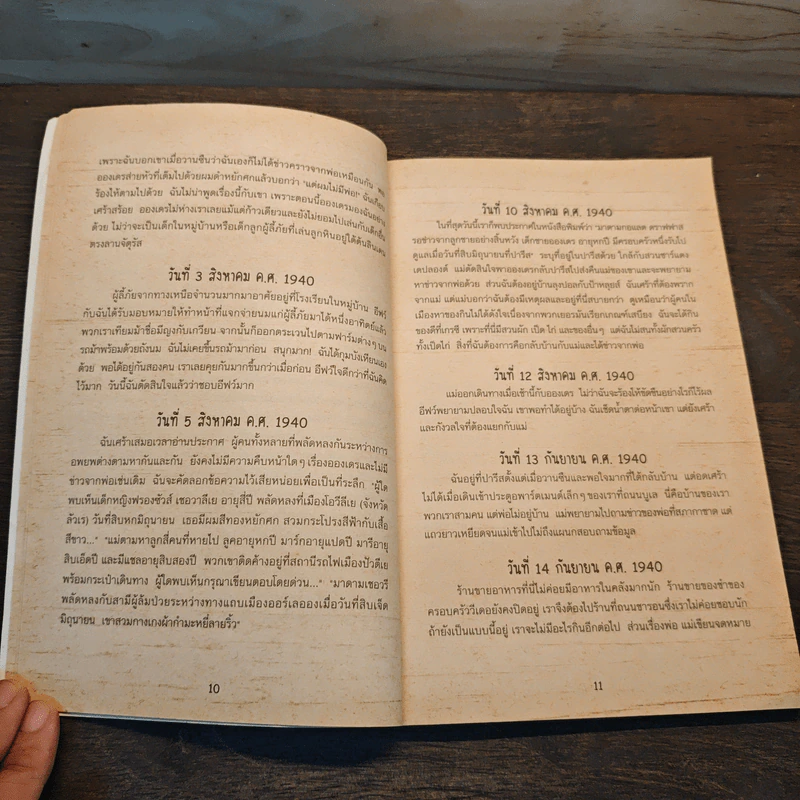 เพราะฉันบอกเขาเมื่อวานซืนว่าฉันเองก็ไม่ได้ข่าวคราวจากพ่อเหมือนกัน
อองเดรส่ายหัวที่เต็มไปด้วยผมดำหยักศกแล้วบอกว่า "แต่ผมไม่มีพ่อ!"
ร้องไห้ตามไปด้วย ฉันไม่น่าพูดเรื่องนี้กับเขา เพราะตอนนี้อองเดรมองฉันอย่าง
เศร้าสร้อย อองเดรไม่ห่างเราเลยแม้แต่ก้าวเดียวและยังไม่ยอมไปเล่นกับเด็กอื่น
ด้วย ไม่ว่าจะเป็นเด็กในหมู่บ้านหรือเด็กลูกผู้ลี้ภัยที่เล่นลูกหินอยู่ใต้ต้น
ตรงลานจัตุรัส
วันที่ 3 สิงหาคม ค.ศ. 1940
ผู้ลี้ภัยจากทางเหนือจำนวนมากมาอาศัยอยู่ที่โรงเรียนในหมู่บ้าน อีฟว์
กับฉันได้รับมอบหมายให้ทำหน้าที่แจกจ่ายนมแก่ผู้ลี้ภัยมาได้หนึ่งอาทิตย์แล้ว
พวกเราเทียมม้าชื่อมีญงกับเกวียน จากนั้นก็ออกตระเวนไปตามฟาร์มต่างๆ บน
รถม้าพร้อมด้วยถังนม ฉันไม่เคยขี้นรถม้ามาก่อน สนุกมาก! ฉันได้กุมบังเหียนเอง
ด้วย พอได้อยู่กันสองคน เราเลยคุยกันมากขึ้นกว่าเมื่อก่อน อีฟว์ใจดีกว่าที่ฉันคิด
ไว้มาก วันนี้ฉันตัดสินใจแล้วว่าชอบอีฟว์มาก
วันที่ 5 สิงหาคม ค.ศ. 1940
ฉันเศร้าเสมอเวลาอ่านประกาศ ผู้คนทั้งหลายที่พลัดหลงกันระหว่างการ
อพยพต่างตามหากันและกัน ยังคงไม่มีความคืบหน้าใดๆ เรื่องอองเดรและไม่มี
ข่าวจากพ่อเช่นเดิม ฉันจะคัดลอกข้อความไว้เสียหน่อยเพื่อเป็นที่ระลึก "ผู้ใด
พบเห็นเด็กหญิงฟรองซัวส์ เชอวาลีเย อายุสี่ปี พลัดหลงที่เมืองโอวีลีเย (จังหวัด
ลัวเร) วันที่สิบหกมิถุนายน เธอมีผมสีทองหยักศก สวมกระโปรงสีฟ้ากับเสื้อ
สีขาว..." "แม่ตามหาลูกสี่คนที่หายไป ลูคอายุหกปี มาร์กอายุแปดปี มารีอายุ
สิบเอ็ดปี และมีแชลอายุสิบสองปี พวกเขาติดค้างอยู่ที่สถานีรถไฟเมืองปัวตีเย
พร้อมกระเป๋าเดินทาง ผู้ใดพบเห็นกรุณาเขียนตอบโดยด่วน..." "มาดามเชอวรี
พลัดหลงกับสามีผู้ล้มป่วยระหว่างทางแถบเมืองออร์เลอองเมื่อวันที่สิบเจ็ด
มิถุนายน เขาสวมกางเกงผ้ากำมะหยี่ลายริ้ว"
10
วันที่ 10 สิงหาคม ค.ศ. 1940
ในที่สุดวันนี้เราก็พบประกาศในหนังสือพิมพ์ว่า "มาดามกอแลต ตราฟฟาส
รอข่าวจากลูกชายอย่างสิ้นหวัง เด็กชายอองเดร อายุหกปี มีครอบครัวหนึ่งรับไป
ดูแลเมื่อวันที่สิบมิถุนายนที่ปารีส" ระบุที่อยู่ในปารีสด้วย ใกล้กับสวนชาร์แดง
เดปลองต์ แม่ตัดสินใจพาอองเดรกลับปารีสไปส่งคืนแม่ของเขาและจะพยายาม
หาข่าวจากพ่อด้วย ส่วนฉันต้องอยู่บ้านลุงปอลกับป้าหลุยส์ ฉันเศร้าที่ต้องพราก
จากแม่ แต่แม่บอกว่าฉันต้องมีเหตุผลและอยู่ที่นี่สบายกว่า ดูเหมือนว่าผู้คนใน
เมืองหาของกินไม่ได้ดังใจเนื่องจากพวกเยอรมันเรียกเกณฑ์เสบียง ฉันจะได้กิน
ของดีที่เกาซี เพราะที่นี่มีสวนผัก เป็ด ไก่ และของอื่นๆ แต่ฉันไม่สนทั้งผักสวนครัว
ทั้งเป็ดไก่ สิ่งที่ฉันต้องการคือกลับบ้านกับแม่และได้ข่าวจากพ่อ
วันที่ 12 สิงหาคม ค.ศ. 1940
แม่ออกเดินทางเมื่อเช้านี้กับอองเดร ไม่ว่าฉันจะร้องไห้ขัดขืนอย่างไรก็ไร้ผล
อีฟว์พยายามปลอบใจฉัน เขาพอทำได้อยู่บ้าง ฉันเช็ดน้ำตาต่อหน้าเขา แต่ยังเศร้า
และกังวลใจที่ต้องแยกกับแม่
วันที่ 13 กันยายน ค.ศ. 1940
ฉันอยู่ที่ปารีสตั้งแต่เมื่อวานซืนและพอใจมากที่ได้กลับบ้าน แต่อดเศร้า
ไม่ได้เมื่อเดินเข้าประตูอพาร์ตเมนต์เล็กๆ ของเราที่ถนนบูเล นี่คือบ้านของเรา
พวกเราสามคน แต่พ่อไม่อยู่บ้าน แม่พยายามไปถามข่าวของพ่อที่สภากาชาด แต่
แถวยาวเหยียดจนแม่เข้าไปไม่ถึงแผนกสอบถามข้อมูล
วันที่ 14 กันยายน ค.ศ. 1940
ร้านขายอาหารที่นี่ไม่ค่อยมีอาหารในคลังมากนัก ร้านขายของชำของ
ครอบครัววีเดอยังคงปิดอยู่ เราจึงต้องไปร้านที่ถนนชารอนซึ่งเราไม่ค่อยชอบนัก
ถ้ายังเป็นแบบนี้อยู่ เราจะไม่มีอะไรกินอีกต่อไป ส่วนเรื่องพ่อ แม่เขียนจดหมาย
11